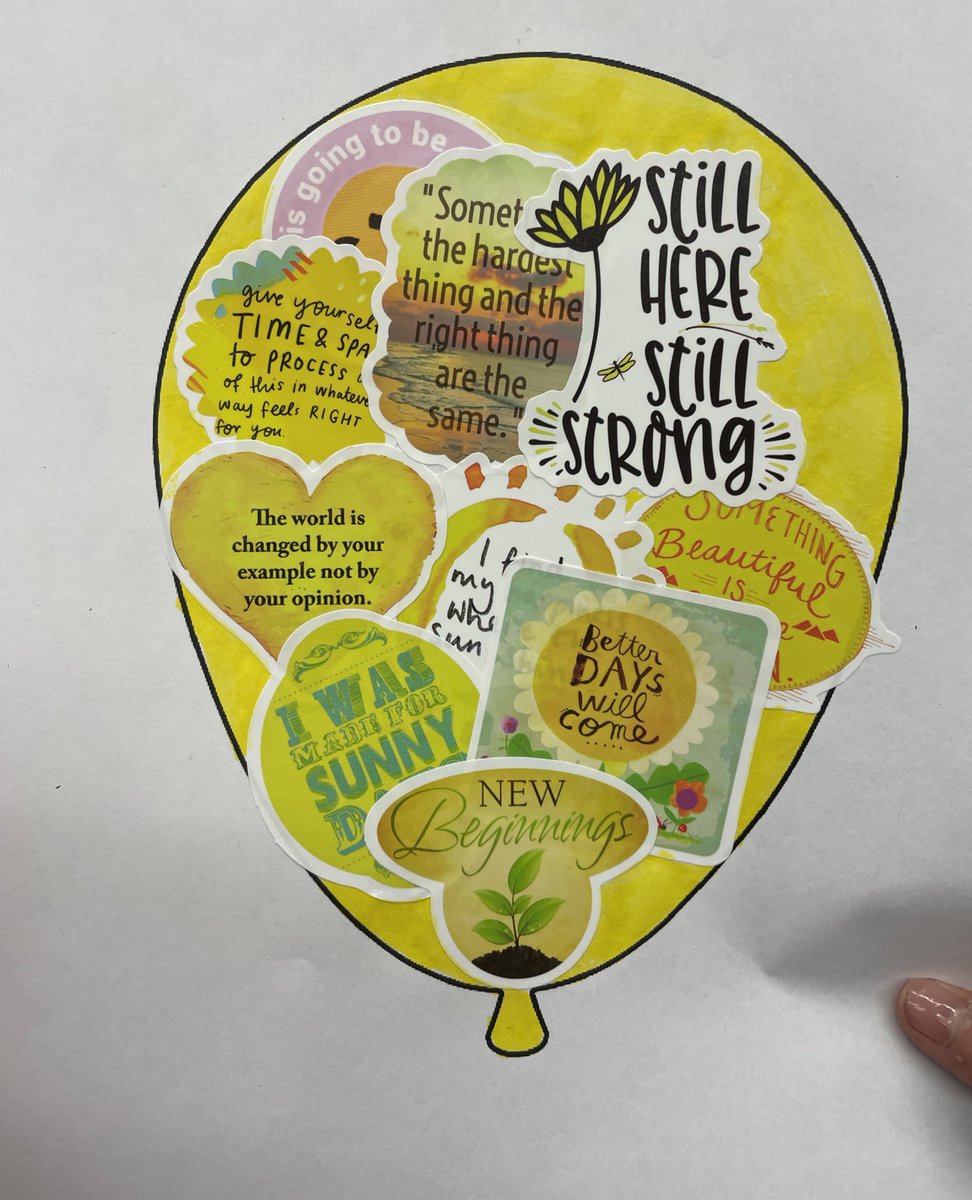 is going to be
"Somet
the hardest
thing and the
right thing
are the
same."
STILL
HERE
STILL
STRONG
give yourself
TIME & SPA
to PROCESS
of this in whateve
way feels RIGHT
for you.
The world is
changed by your
example not by
your opinion.
I
my
whe
sun
SOMETHING
Beautiful
IS
Better
DAYS
will
come
I WAS
MADE FOR
SUNNY
NEW
Beginnings